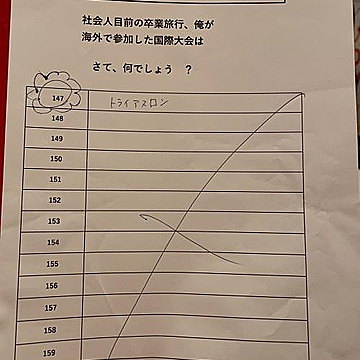 社会人目前の卒業旅行、俺が
海外で参加した国際大会は
さて、何でしょう ？
147 トライアスロン
148
149
150
151
152
153
154
155
156
157
158
159